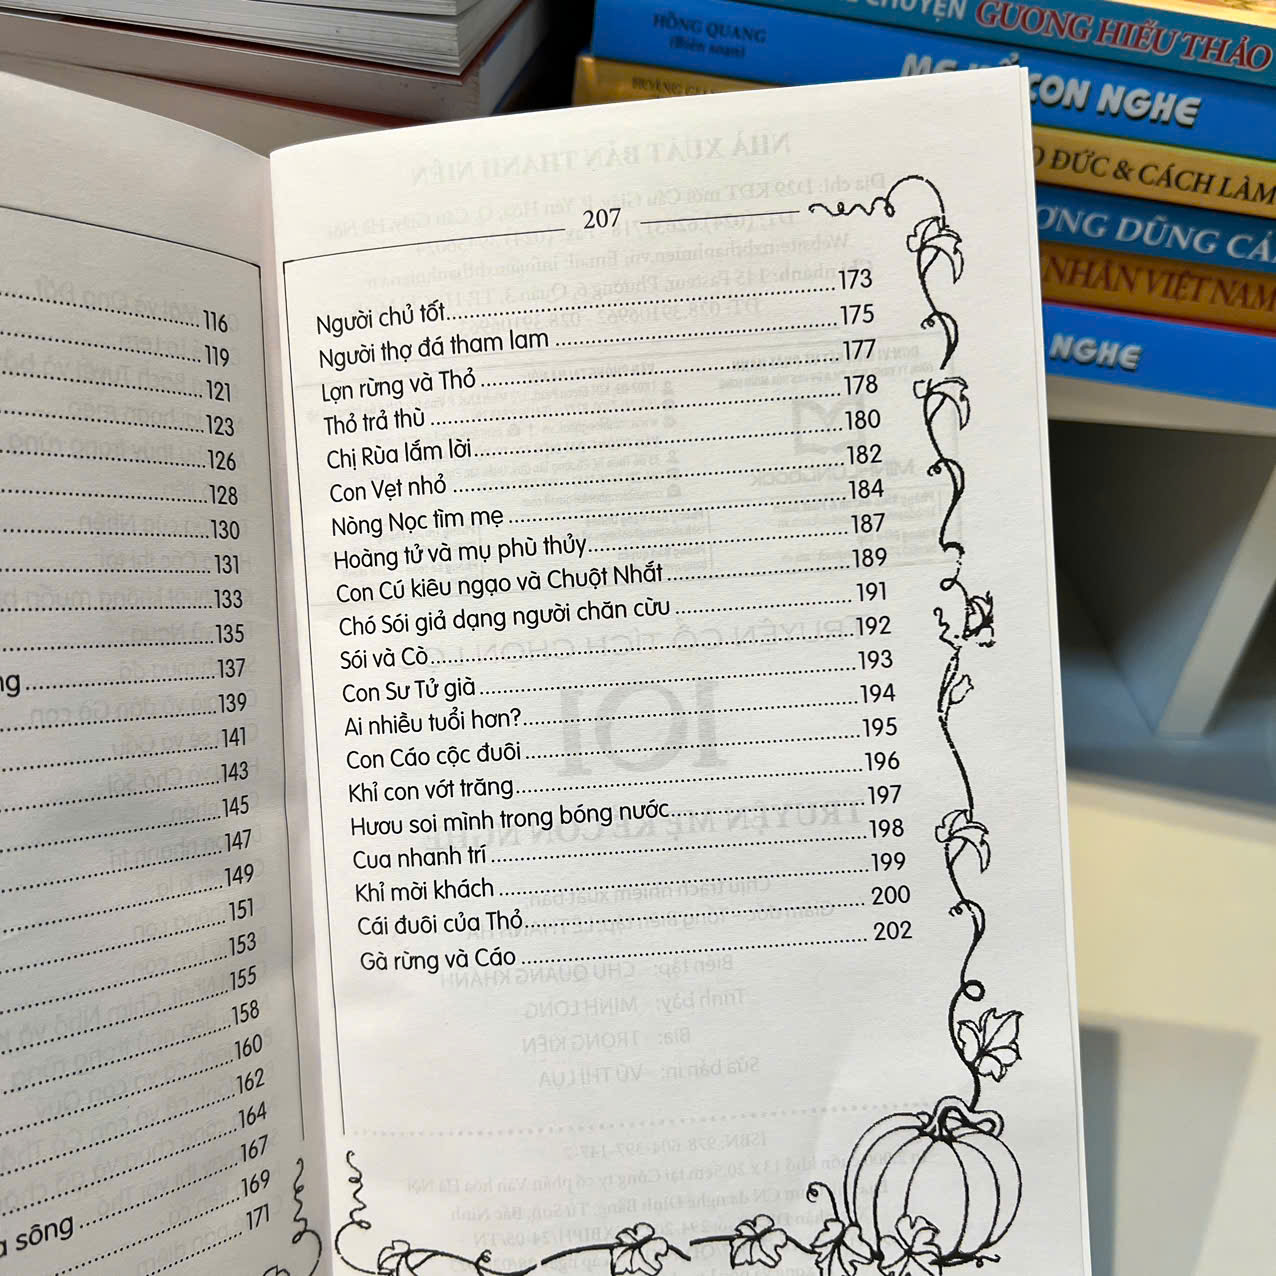 CHUYỆN GƯƠNG HIẾU THẢO
HỒNG QUANG
(Biên soạn)
MẸ KỂ CON NGHE
ĐỨC & CÁCH LÀM
DŨNG CẢ
NHÂN VIỆT NAM
NGHE
116
119
121
123
126
128
130
131
133
135
137
139
141
143
145
147
149
151
153
155
158
160
162
164
sông 167
169
171
207
Người chủ tốt 173
Người thợ đá tham lam 175
Lợn rừng và Thỏ 177
Thỏ trả thù 178
Chị Rùa lắm lời 180
Con Vẹt nhỏ 182
Nòng Nọc tìm mẹ 184
Hoàng tử và mụ phù thủy 187
Con Cú kiêu ngạo và Chuột Nhắt 189
Chó Sói giả dạng người chăn cừu 191
Sói và Cò 192
Con Sư Tử già 193
Ai nhiều tuổi hơn? 194
Con Cáo cộc đuôi 195
Khỉ con vớt trăng 196
Hươu soi mình trong bóng nước 197
Cua nhanh trí 198
Khỉ mời khách 199
Cái đuôi của Thỏ 200
Gà rừng và Cáo 202